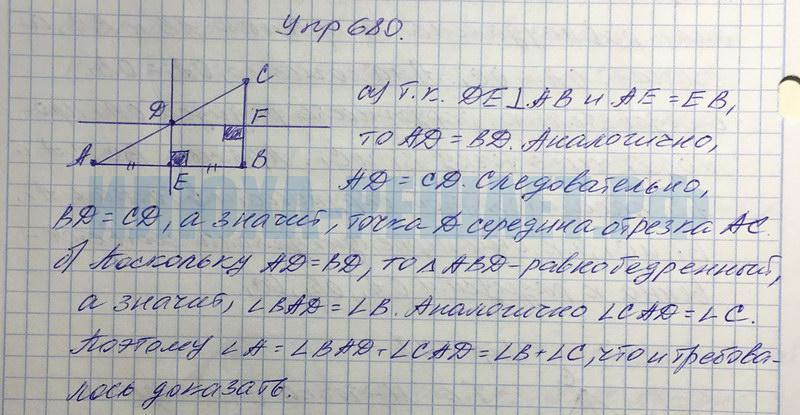 Упр 680.
C
D
F
A
E
B
а) Т.к. DE⊥AB и AE=EB,
то AD=BD. Аналогично,
AD=CD. Следовательно,
BD=CD, а значит, точка D середина отрезка AC.
б) Поскольку AD=BD, то △ABD-равнобедренный,
а значит, ∠BAD=∠B. Аналогично ∠CAD=∠C.
Поэтому ∠A=∠BAD+∠CAD=∠B+∠C, что и требова-
лось доказать.